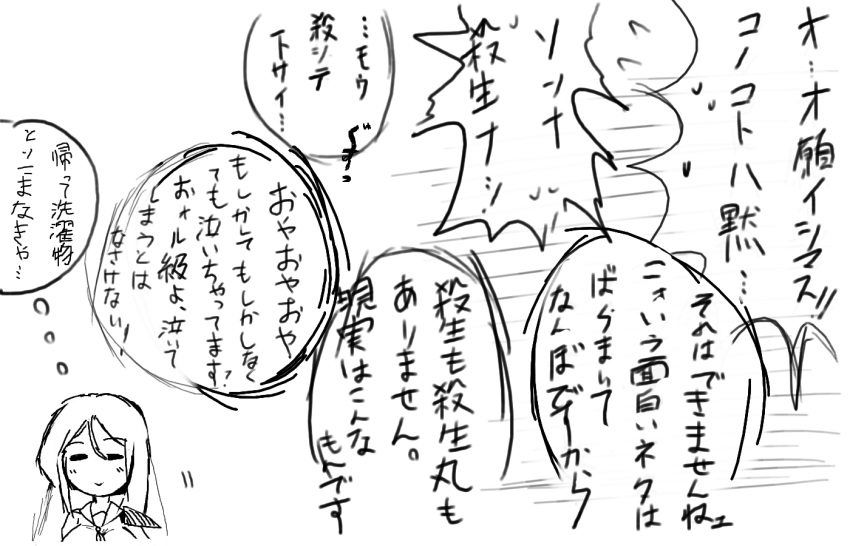 オ…オ願イシマス!!
コノコトハ黙…
それはできませんねェ
こォいう面白いネタは
ばらまいて
なんぼですから
ソンナ
殺生ナッ
殺生も殺生丸も
ありません。
現実はこんな
もんです
…モウ
殺シテ
下サイ…
おやおやおや
もしかしてもしかしなく
ても泣いちゃってます?
おォル級よ、泣いて
しまうとは
なさけない!
帰って洗濯物
とりこまなきゃ…